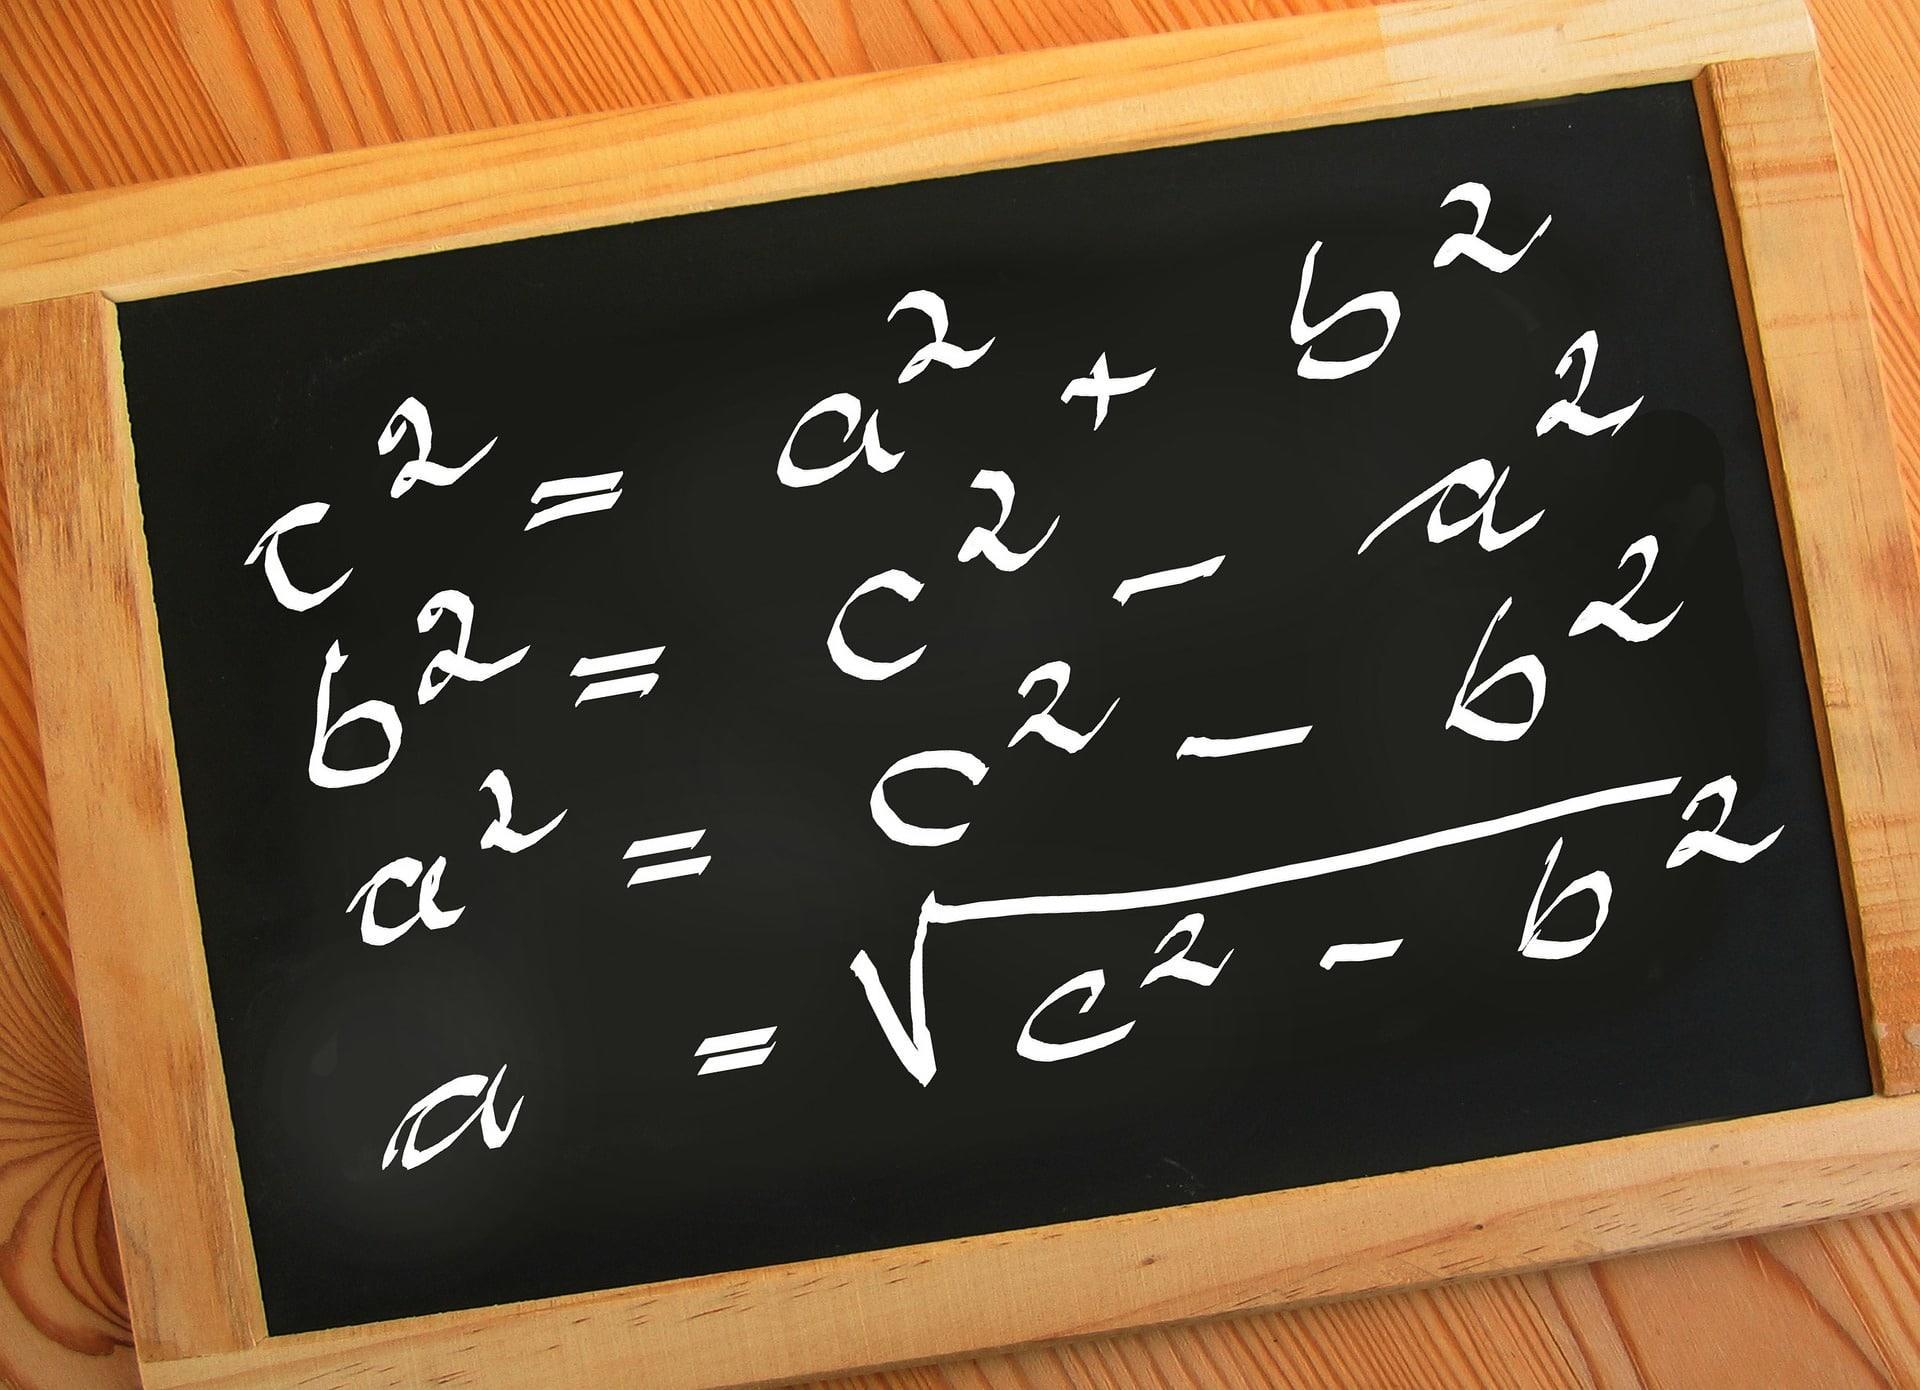 c² = a² + b²
b² = c² - a²
a² = c² - b²
a = √(c² - b²)